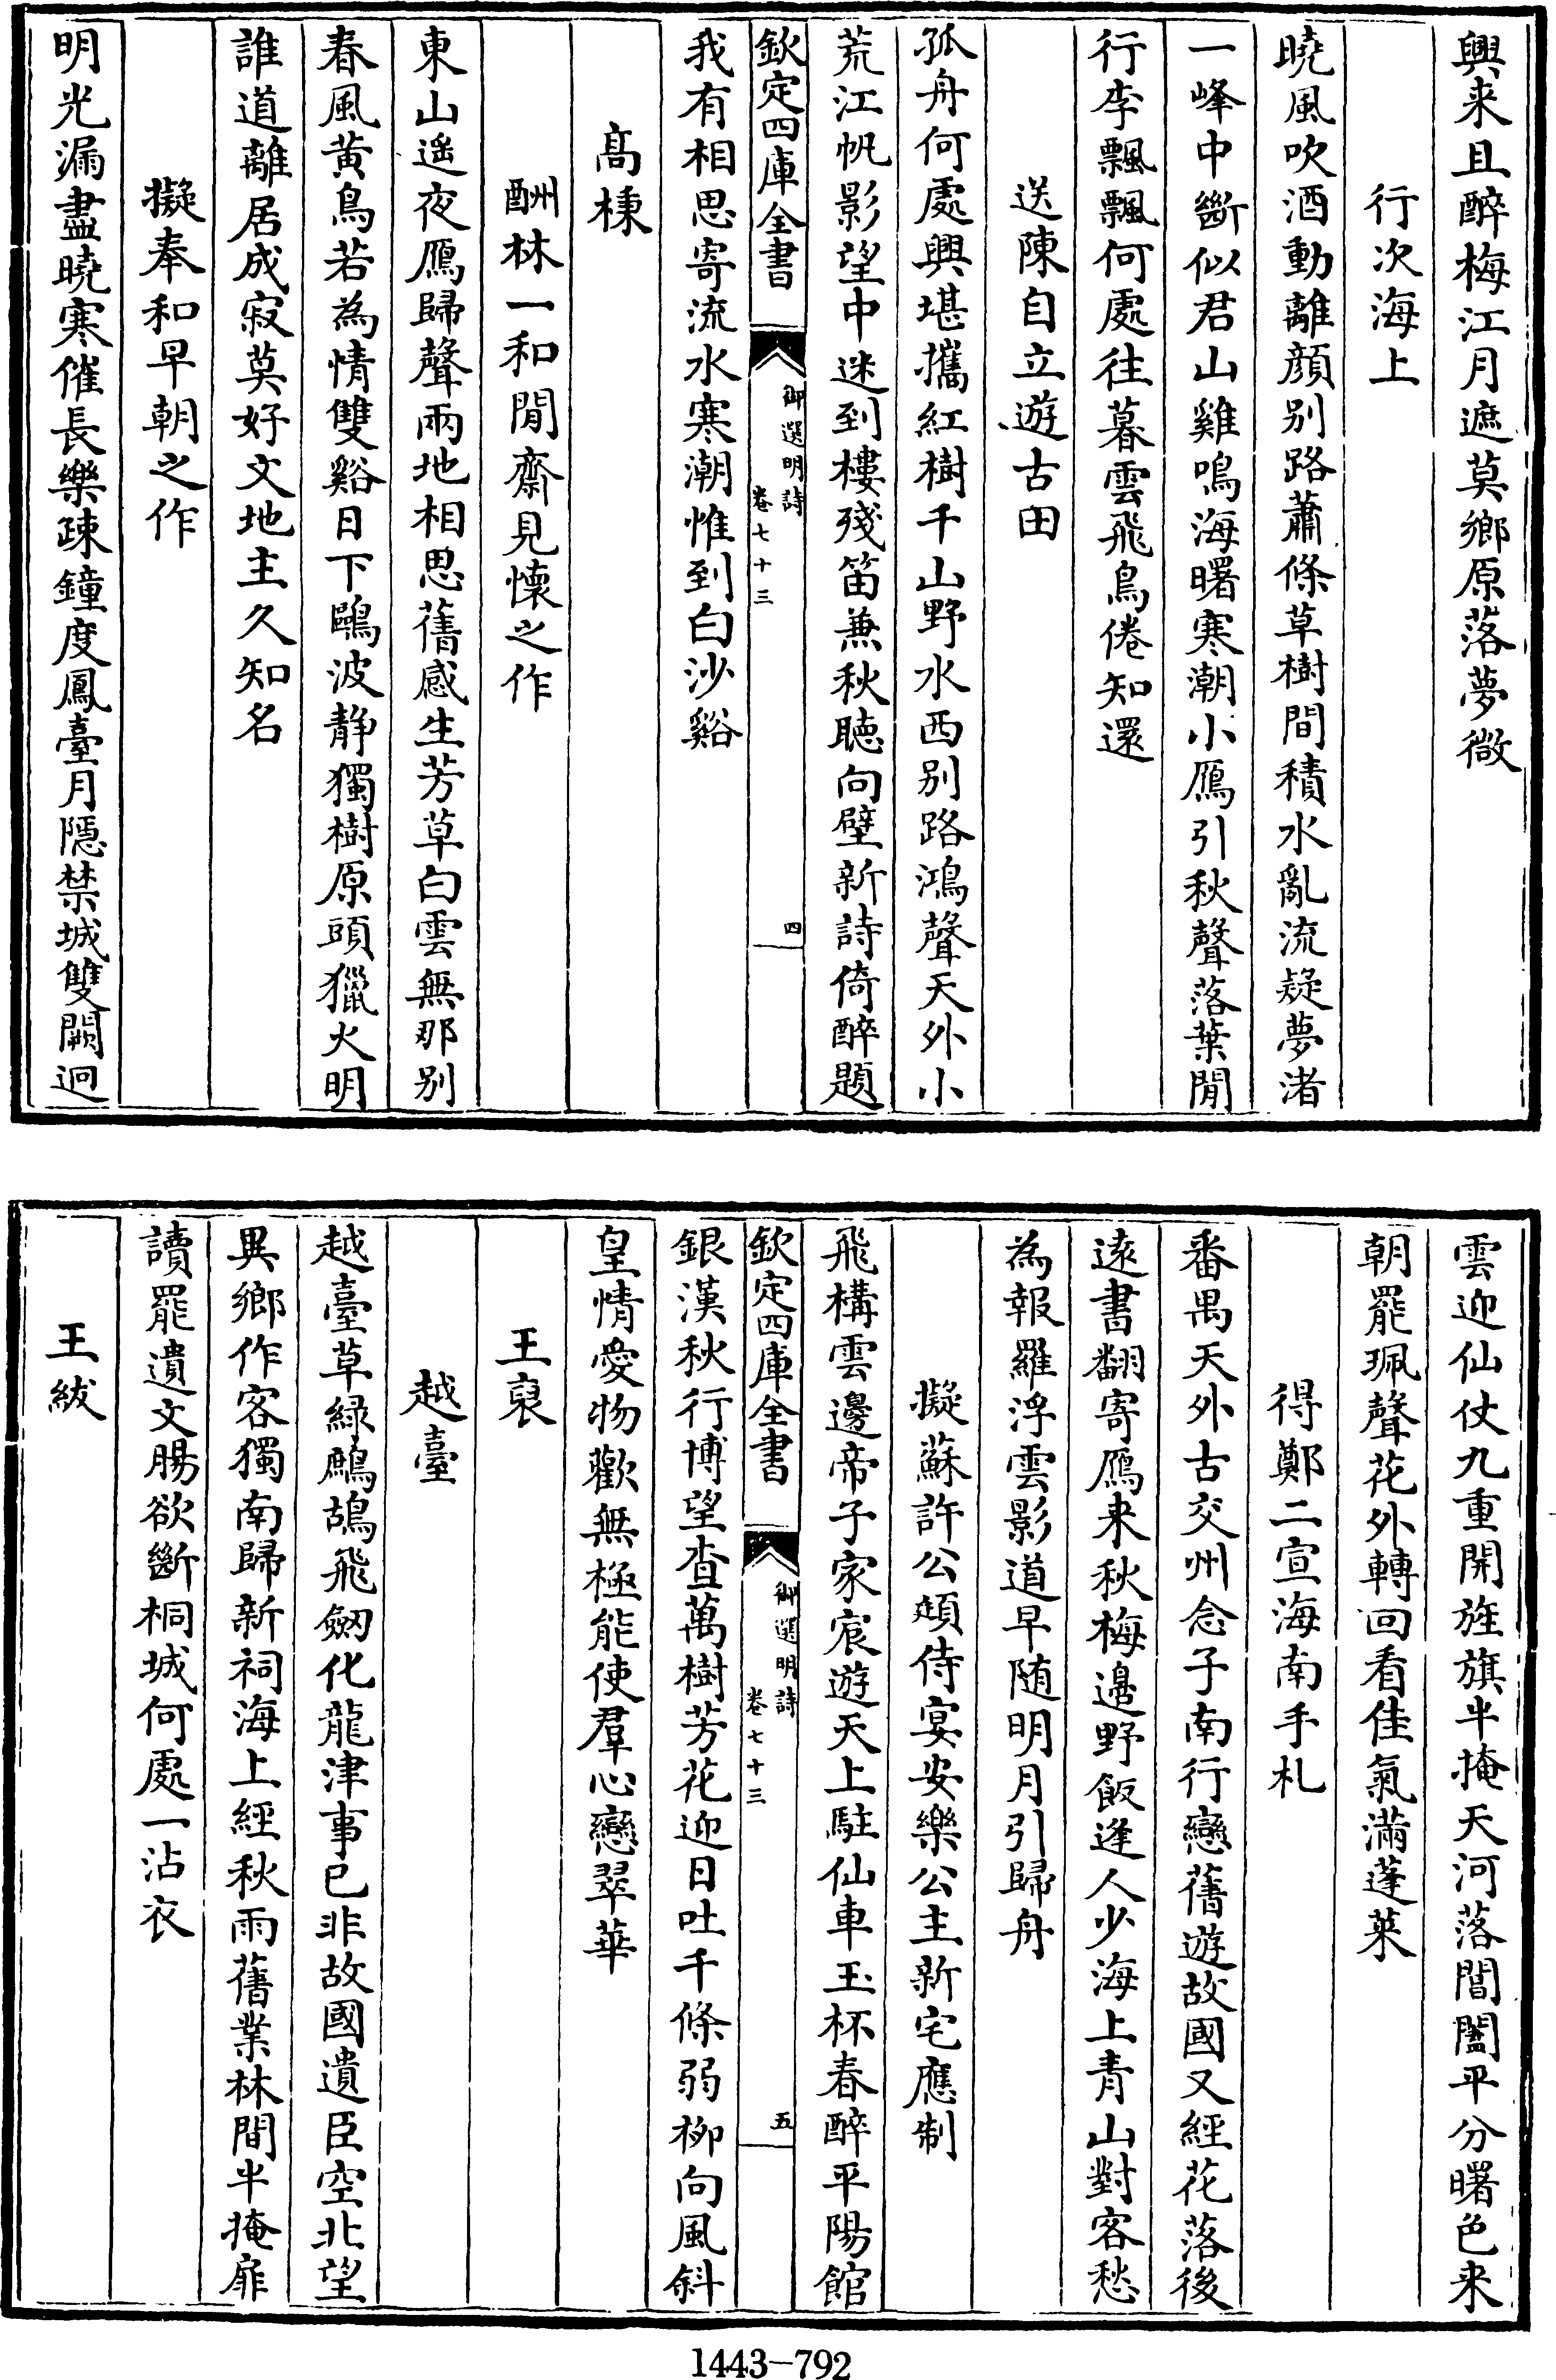 興来且醉梅江月遮莫鄉原落夢微
行次海上
曉風吹酒動離顔别路蕭條草樹間積水亂流疑夢渚
一峰中斷似君山雞鳴海曙寒潮小鴈引秋聲落葉閒
行李飄飄何處往暮雲飛鳥倦知還
送陳自立遊古田
孤舟何處興堪攜紅樹千山野水西别路鴻聲天外小
荒江帆影望中迷到樓殘笛兼秋聴向壁新詩倚醉題
欽定四庫全書
御選明詩
卷七十三
四
我有相思寄流水寒潮惟到白沙谿
髙棅
酬林一和閒齋見懷之作
東山遥夜鴈歸聲兩地相思舊感生芳草白雲無那别
春風黄鳥若為情雙谿日下鷗波静獨樹原頭獵火明
誰道離居成寂莫好文地主久知名
擬奉和早朝之作
明光漏盡曉寒催長樂疎鐘度鳳臺月隱禁城雙闕迥
雲迎仙仗九重開旌旗半掩天河落閶闔平分曙色来
朝罷珮聲花外轉回看佳氣滿蓬萊
得鄭二宣海南手札
番禺天外古交州念子南行戀舊遊故國又經花落後
逺書翻寄鴈来秋梅邊野飯逢人少海上青山對客愁
為報羅浮雲影道早随明月引歸舟
擬蘇許公頲侍宴安樂公主新宅應制
飛構雲邊帝子家宸遊天上駐仙車玉杯春醉平陽館
欽定四庫全書
御選明詩
卷七十三
五
銀漢秋行博望查萬樹芳花迎日吐千條弱柳向風斜
皇情愛物歡無極能使羣心戀翠華
王褒
越臺
越臺草緑鷓鴣飛劒化龍津事已非故國遺臣空北望
異鄉作客獨南歸新祠海上經秋雨舊業林間半掩扉
讀罷遺文腸欲斷桐城何處一沾衣
王紱
1443-792